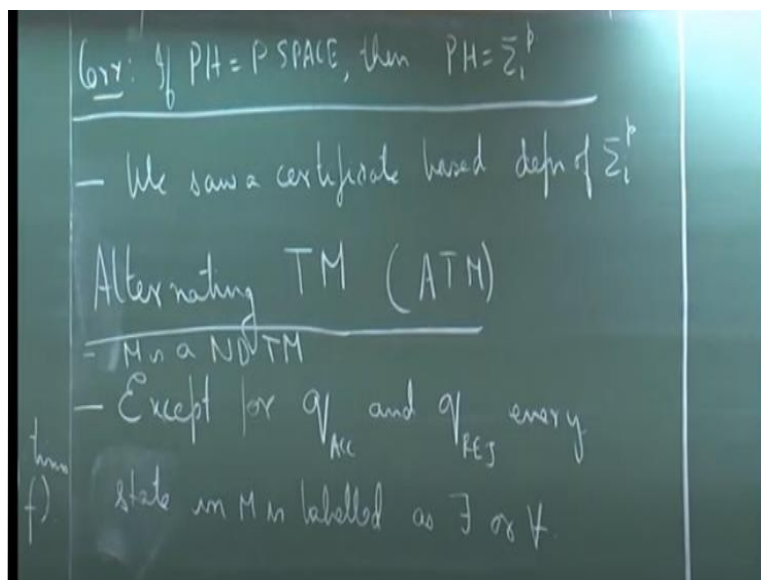 Corr: If PH = PSPACE, then PH = Σᵢᵖ
— We saw a certificate based defn of Σᵢᵖ
Alternating TM (ATM)
- M is a NDTM
— Except for q_ACC and q_REJ every
state in M is labelled as ∃ or ∀.